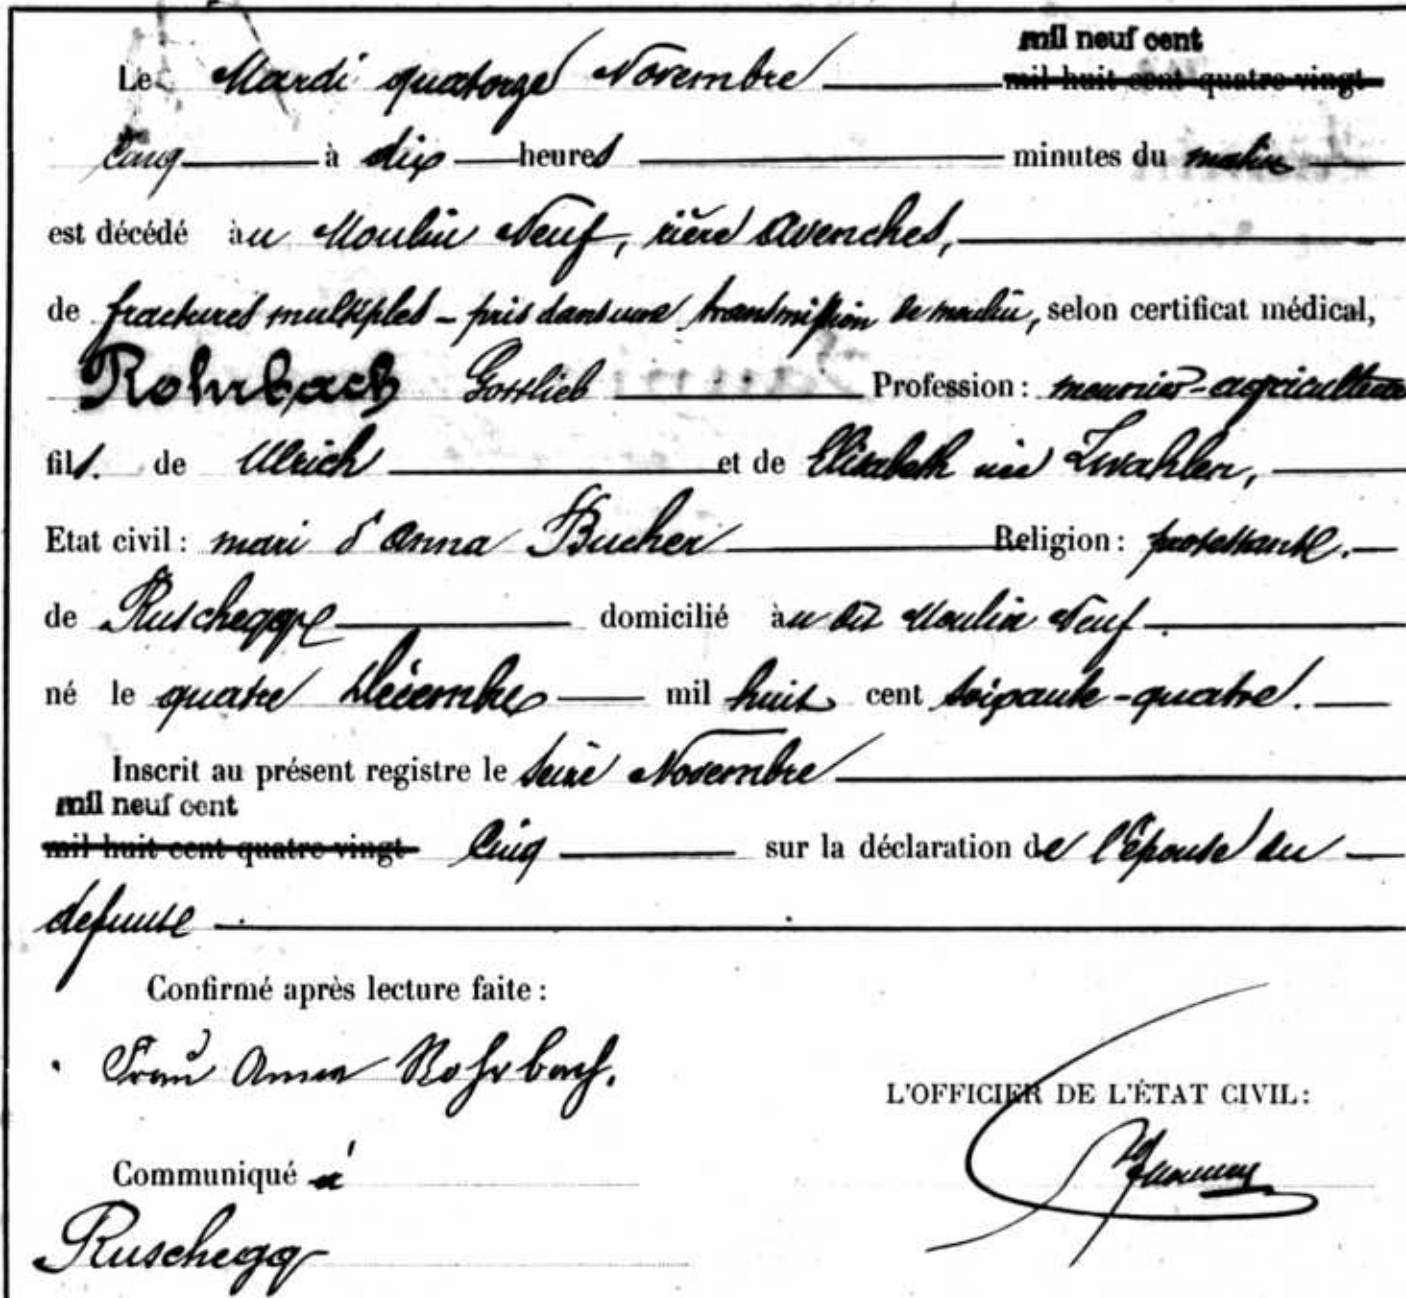 mil neuf cent
Le Mardi quatorze Novembre mil huit cent quatre-vingt
cinq à dix heures minutes du matin
est décédé au Moulin Neuf, rière Avenches,
de fractures multiples - pris dans une transmission de moulin, selon certificat médical,
Rohrbach Gottlieb Profession: meunier-agriculteur
fils. de Ulrich et de Elisabeth née Zwahlen,
Etat civil: mari d'Anna Bucher Religion: protestante.
de Ruschegg domicilié au dit Moulin Neuf.
né le quatre Décembre mil huit cent soixante-quatre.
Inscrit au présent registre le seize Novembre
mil neuf cent
mil huit cent quatre-vingt cinq sur la déclaration de l'épouse du
defunt
Confirmé après lecture faite:
Frau Anna Rohrbach.
L'OFFICIER DE L'ÉTAT CIVIL:
Communiqué à
Ruschegg